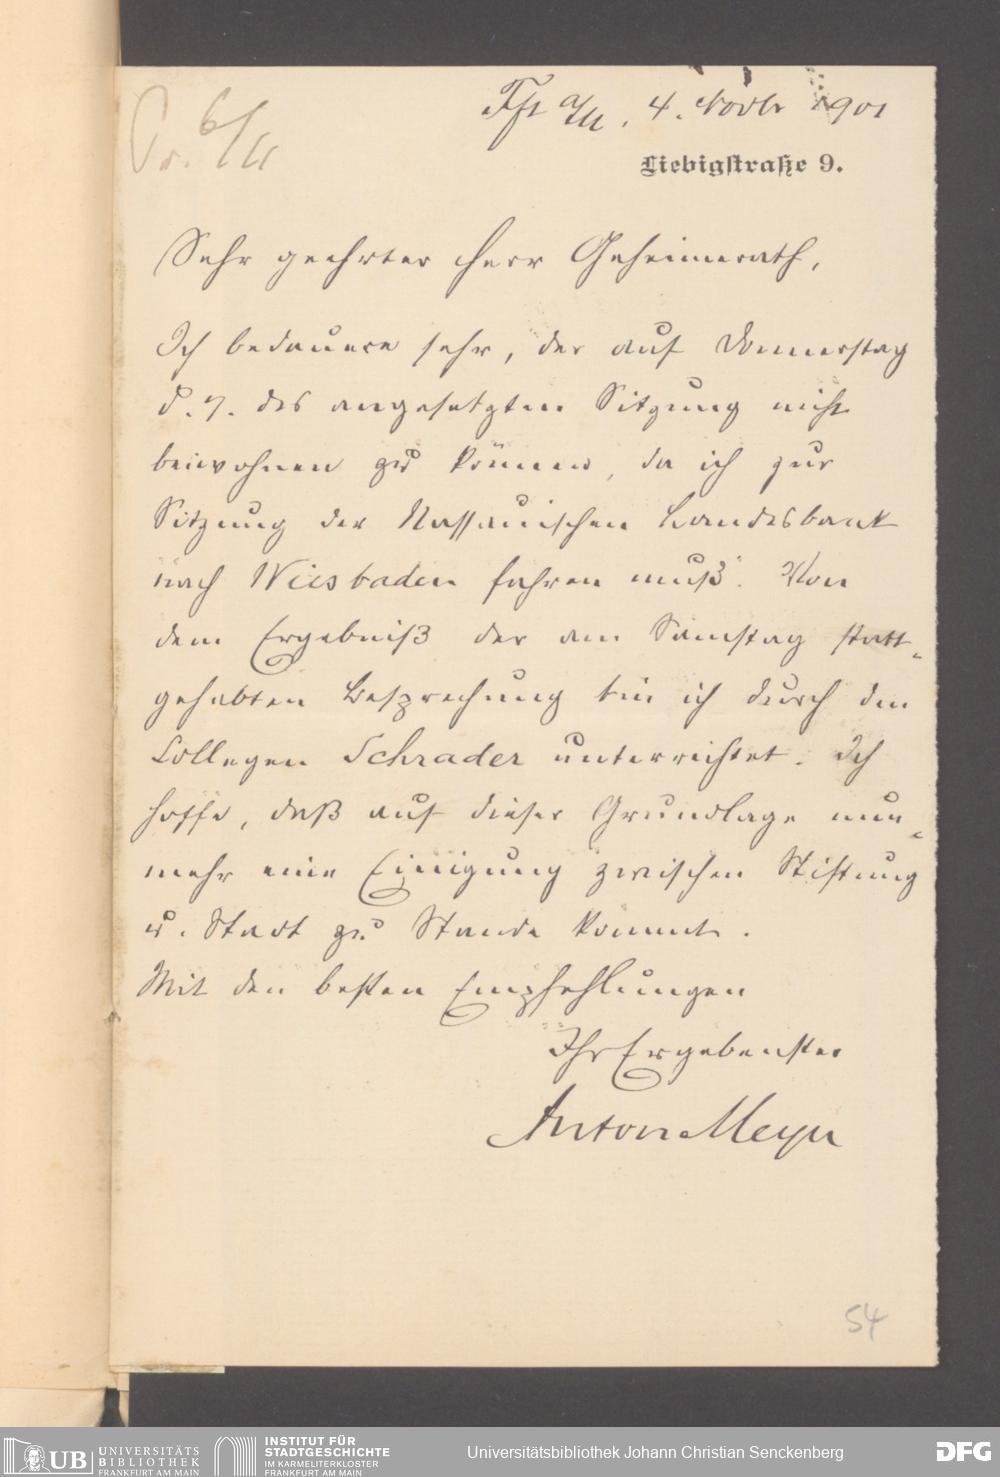 Pr. 6/11
Fft a/M. 4. Novbr 1901
Liebigstraße 9.
Sehr geehrter Herr Geheimerath,
Ich bedauere sehr, der auf Donnerstag
d. 7. ds angesetzten Sitzung nicht
beiwohnen zu können, da ich zur
Sitzung der Nassauischen Landesbank
nach Wiesbaden fahren muß. Von
dem Ergebniß der am Samstag statt-
gehabten Besprechung bin ich durch den
Collegen Schrader unterrichtet. Ich
hoffe, daß auf dieser Grundlage nun-
mehr eine Einigung zwischen Stiftung
u. Stadt zu Stande kommt.
Mit den besten Empfehlungen
Ihr Ergebenster
Anton Meyer
54
UB UNIVERSITÄTS
BIBLIOTHEK
FRANKFURT AM MAIN
INSTITUT FÜR
STADTGESCHICHTE
IM KARMELITERKLOSTER
FRANKFURT AM MAIN
Universitätsbibliothek Johann Christian Senckenberg
DFG